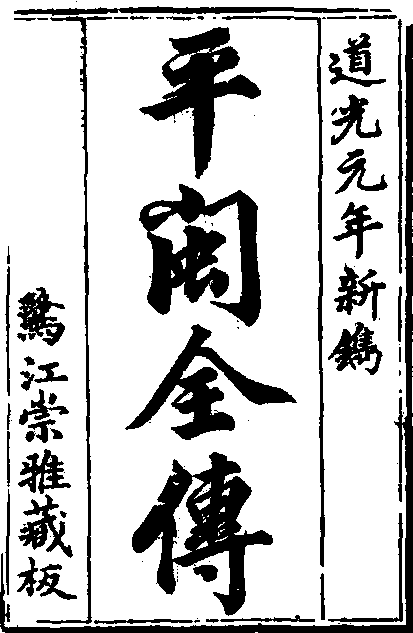 道光元年新鐫
平閩全傳
鷺江崇雅藏板